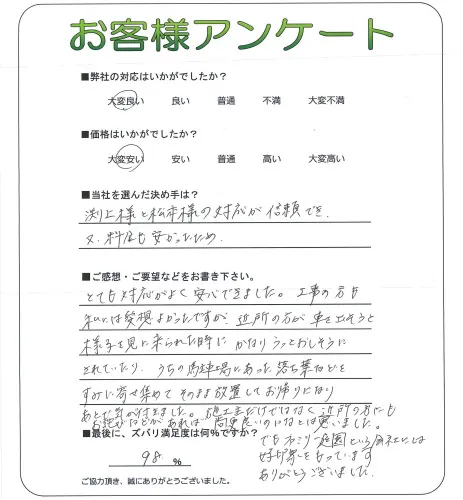 お客様アンケート
■弊社の対応はいかがでしたか？
大変良い 良い 普通 不満 大変不満
■価格はいかがでしたか？
大変安い 安い 普通 高い 大変高い
■当社を選んだ決め手は？
渕上様と松本様の対応が信頼でき、
又、料金も安かったため。
■ご感想・ご要望などをお書き下さい。
とても対応がよく安心できました。工事の方も
私には愛想よかったですが、近所の方が車を出そうと
様子を見に来られた時に かなりうっとおしそうに
されていたり、うちの駐車場にあった落ち葉などを
すみに寄せ集めて そのまま放置してお帰りになり
あとで気が付きました。施工主だけではなく近所の方にも
お詫びなどがあれば、尚更良いのになとは思いました。
でもファミリー庭園という会社には
好印象をもっています
ありがとうございました。
■最後に、ズバリ満足度は何%ですか？
98 %
ご協力頂き、誠にありがとうございました。